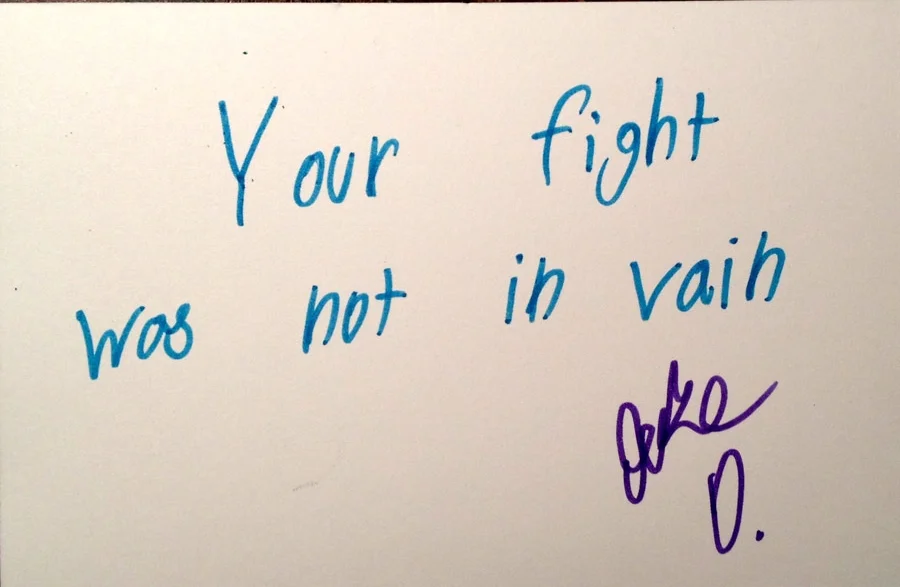 Your fight
was not in vain
Jake
D.